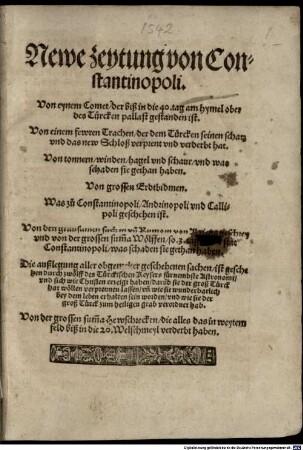 1542
Newe zeytung von Con-
stantinopoli.
Von eynem Comet/der biß in die 40.tag am hymel ober
des Türcken pallast gestanden ist.
Von einem fewren Trachen/der dem Türcken seinen schatz
vnd das new Schloß verprent vnd verderbt hat.
Von tonnern/winden/hagel vnd schaur/vnd was
schaden sie gethan haben.
Von grossen Erdtbidmen.
Was zů Constantinopoli/Andrinopoli vnd Calli-
poli geschehen ist.
Von den grausamen
vnd von der grossen sum̃a Wölffen/so.3.
Constantinopoli/was schaden sie gethan haben.
Die außlegung aller obgemelter geschehenen sachen/ist gesche
hen durch zwölff des Türckischen Keysers fürnembste Astronomi/
vnd sich wie Christen erzeigt haben/darüb sie der groß Türck
hat wöllen verprennen lassen/vñ wie sie wunderbarlich
bey dem leben erhalten sein worden/vnd wie sie der
groß Türck zum heiligen grab versendet had.
Von der grossen sum̃a Hewschrecken/die alles das in weytem
feld biß in die 20.Welschmeyl verderbt haben.